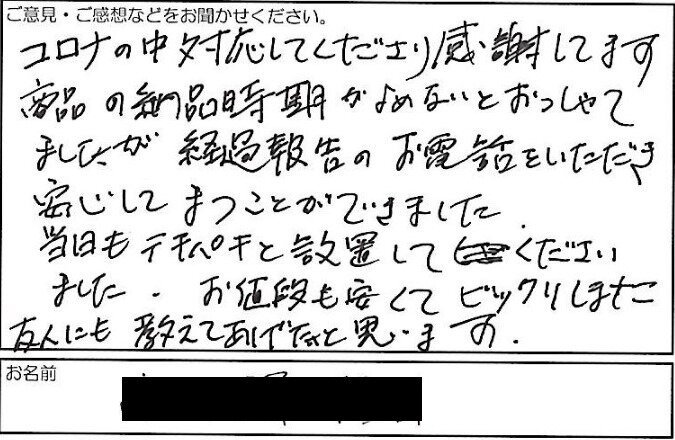 ご意見・ご感想などをお聞かせください。
コロナの中対応してくださり感謝してます
商品の納品時期がよめないとおっしゃて
ましたが経過報告のお電話をいただき
安心してまつことができました
当日もテキパキと設置してください
ました。お値段も安くてビックリしました
友人にも教えてあげたいと思います。
お名前